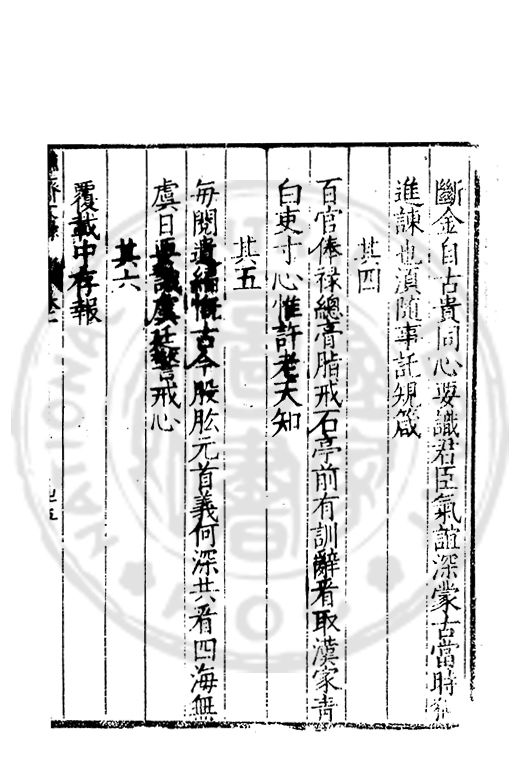 斷金自古貴同心要識君臣氣誼深蒙古當時
進諫也湏随事託規箴
其四
百官俸祿總膏脂戒石亭前有訓辭看取漢家青
白吏寸心惟許老天知
其五
每閱遺編慨古今股肱元首義何深共看四海無
虞日要識虞廷警戒心
其六
覆載中存報